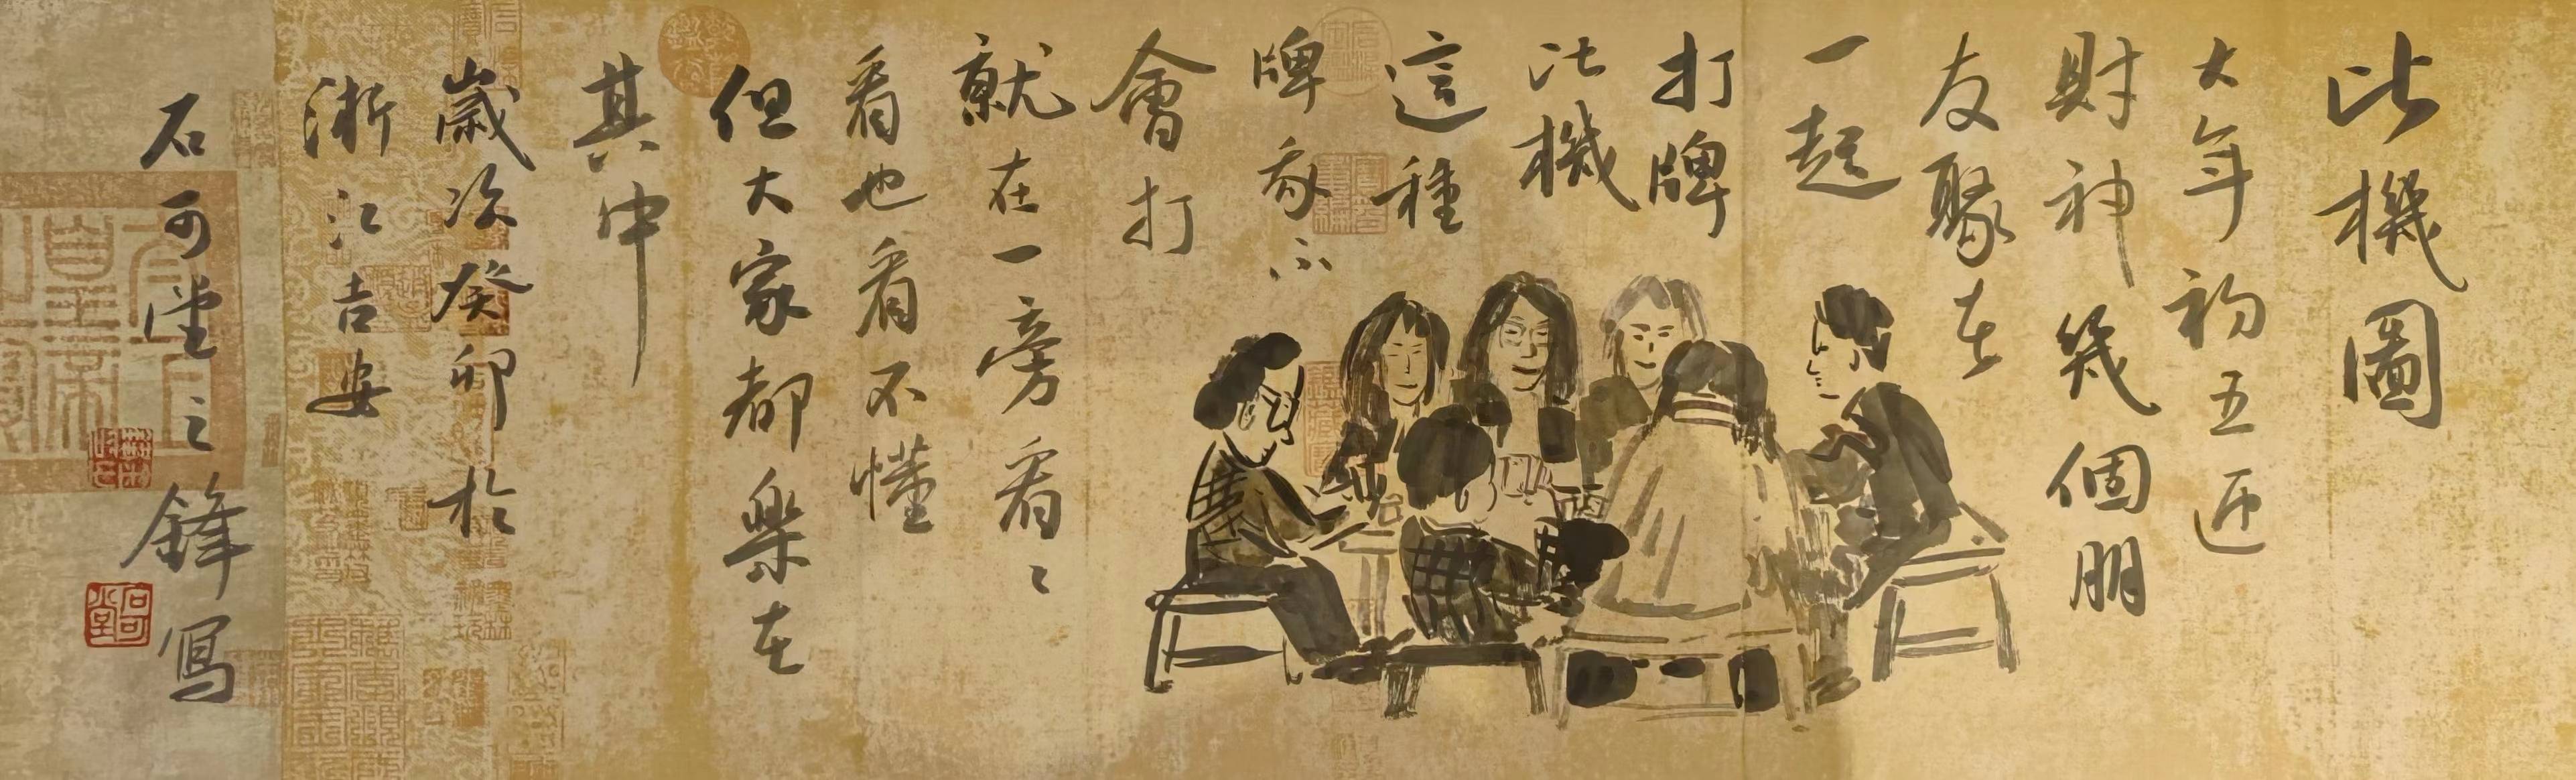 此機圖
大年初五迎
財神幾個朋
友聚在
一起
打牌
比機
這種
牌我不
會打
就在一旁看〻
看也看不懂
但大家都樂在
其中
歲次癸卯於
浙江吉安
石可堂之鋒寫
石可堂